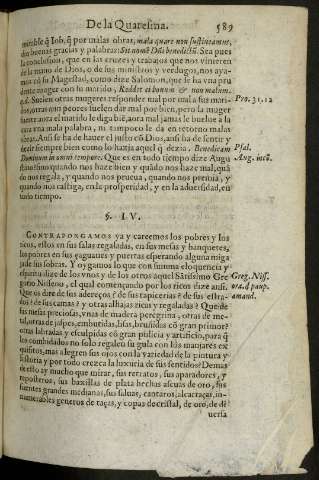 De la Quaresma. 589
mirable q̃ Iob, q̃ por malas obras, mala quare non sustineamus,
dio buenas gracias y palabras: Sit nomē Dñi benedictũ. Sea pues
la conclusion, que en las cruzes y trabajos que nos vinieren
de la mano de Dios, o de sus ministros y verdugos, nos aya-
mos cõ su Magestad, como dize Salomon, que se ha vna pru
dente muger con lo marido, Reddet ei bonum & non malum. Pro. 31.12
&c. Suelen otras mugeres responder mal por mala sus mari-
dos, otras aun peores suelen dar mal por bien, pero la muger
santa aora el marido le diga biẽ, aora mal jamas le buelue a la
cara vna mala palabra, ni tampoco le da en retorno malas
obras. Ansi se ha de hauer el justo cõ Dios, ansi ha de sentir y
dezir siempre bien como lo hazia aquel q̃ dezia. Benedicam Psal.
Dominum in omni tempore. Que es en todo tiempo dize Augu Aug. incõ.
stino sino quando nos haze bien y quãdo nos haze mal, quã
do nos regala, y quando nos prueua, quando nos premia, y
quando nos castiga, en la prosperidad, y en la aduersidad, en
todo tiempo.
§. IV.
CONTRAPONGAMOS ya y careemos los pobres y los
ricos, ellos en sus salas regaladas, en sus mesas y banquetes,
los pobres en sus çaguanes y puertas esperando alguna miga
ja de sus sobras. Y oygamos lo que con summa eloquencia y
espiritu dize de los vnos y de los otros aquel Sãtissimo Gre Greg. Niss.
gorio Nisseno, el qual començando por los ricos dize ansi. ora. d paup.
Que os dire de sus adereços? de sus tapicerias? de sus estra- amand.
dos? de sus camas? y otras alhajas ricas y regaladas? Que de
sus mesas preciosas, vnas de madera peregrina, otras de me-
tal, otras de jaspes, embutidas, lisas, bruñidas cõ gran primor?
otras labradas y esculpidas cõ gran pulicia y artificio, para q̃
los combidados no solo regalen su gula con los manjares ex-
quisitos, mas alegren sus ojos con la variedad de la pintura y
historia y por todo crezca la luxuria de sus sentidos? Demas
de esto ay mucho que mirar, sus retratos, sus aparadores, y
reposteros, sus baxillas de plata hechas ascuas de oro, sus
fuentes grandes medianas, sus saluas, cantaros, alcarraças, in-
numerables generos de taças, y copas de cristal, de oro, de di
uersa